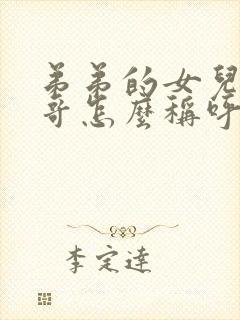 弟弟的女兒
哥怎麼稱呼
李定達